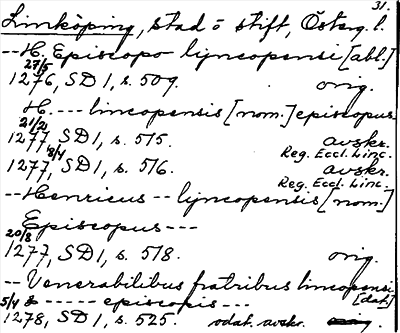 31.
Linköping, stad o stift, Österg. l.
--H. Episcopo lyncopensi [abl.]
27/5 1276, SD 1, s. 509. orig.
H. --- lincopensis [nom.] episcopus
21/2 1277, SD 1, s. 515. avskr. Reg. Eccl. Linc.
8/4 1277, SD 1, s. 516. avskr. Reg. Eccl. Linc.
--Henricus -- lyncopensis [nom.]
Episcopus ---
20/8 1277, SD 1, s. 518. orig.
-- Venerabilibus fratribus lincopensi [dat]
----- episcopis ---
5/4 1278, SD 1, s. 525. odat. avskr.